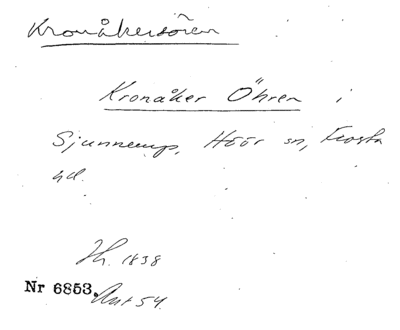 Kronåkersören
Kronåker Öhren i
Sjunnerup, Höör sn, Frosta
hd.
Jh. 1838
Nr 6853. Akt 54.